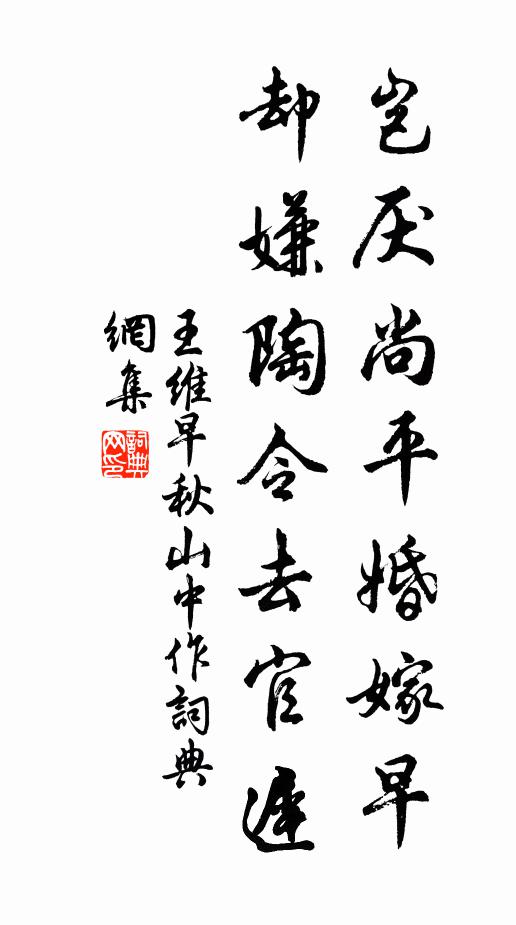 岂厌尚平婚嫁早
却嫌陶令去官遲
王維早秋山中作詞典
網集
詞典
网印